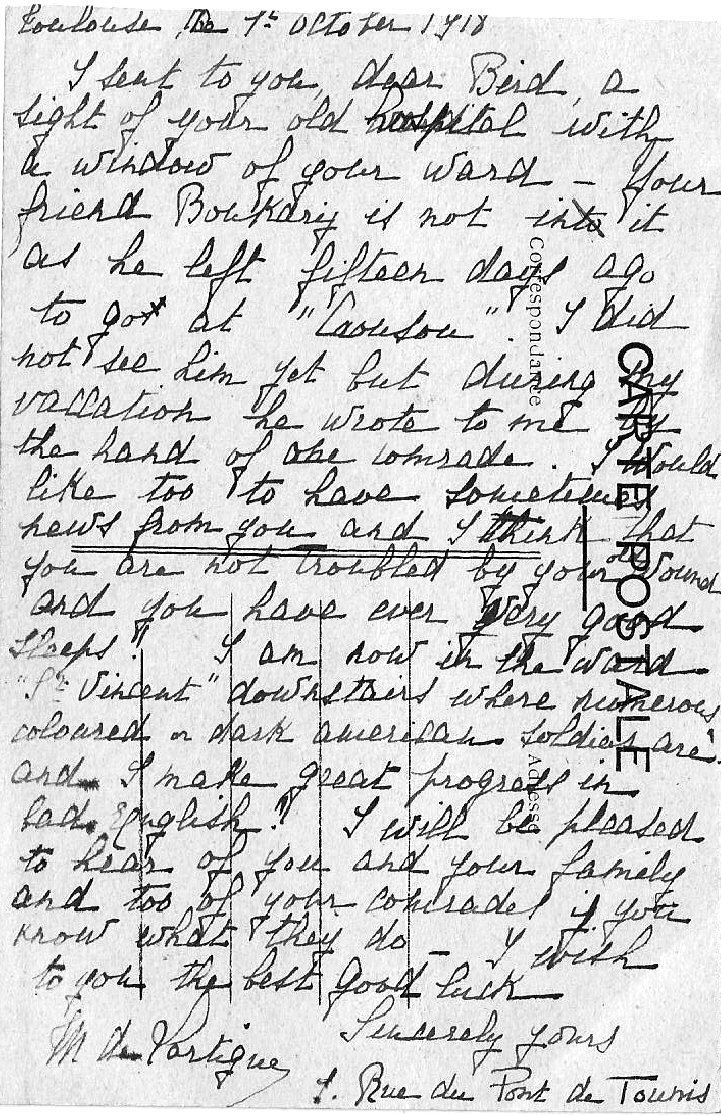 Toulouse the 1st October 1918
I sent to you, dear Bird, a
sight of your old hospital with
a window of your ward – Your
friend Boukary is not into it
as he left fifteen days ago
to go at "Caousou". I did
not see him yet but during my
vaccation he wrote to me by
the hand of one comrade. I would
like too to have sometimes
news from you and I think that
you are not troubled by your old wound
and you have ever very good
sleeps! I am now in the ward
"St Vincent" downstairs where numerous
coloured or dark american soldiers are.
and I make great progress in
bad English! I will be pleased
to hear of you and your family
and too of your comrades if you
know what they do – I wish
to you the best good luck
Sincerely yours
M de
1. Rue du Pont de Tounis
CARTE POSTALE
Correspondance
Adresse